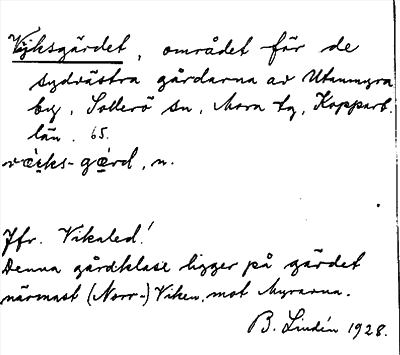 Vijksgärdet, området för de
sydvästra gårdarna av Utanmyra
by, Sollerö sn, Mora tg, Kopparb.
län. 65.
væ̀iks-gæ̀rd, n.
Jfr. Vikaled!
Denna gårdklase ligger på gärdet
närmast (Norr-) Viken, mot Myrarna.
B. Lindén 1928.